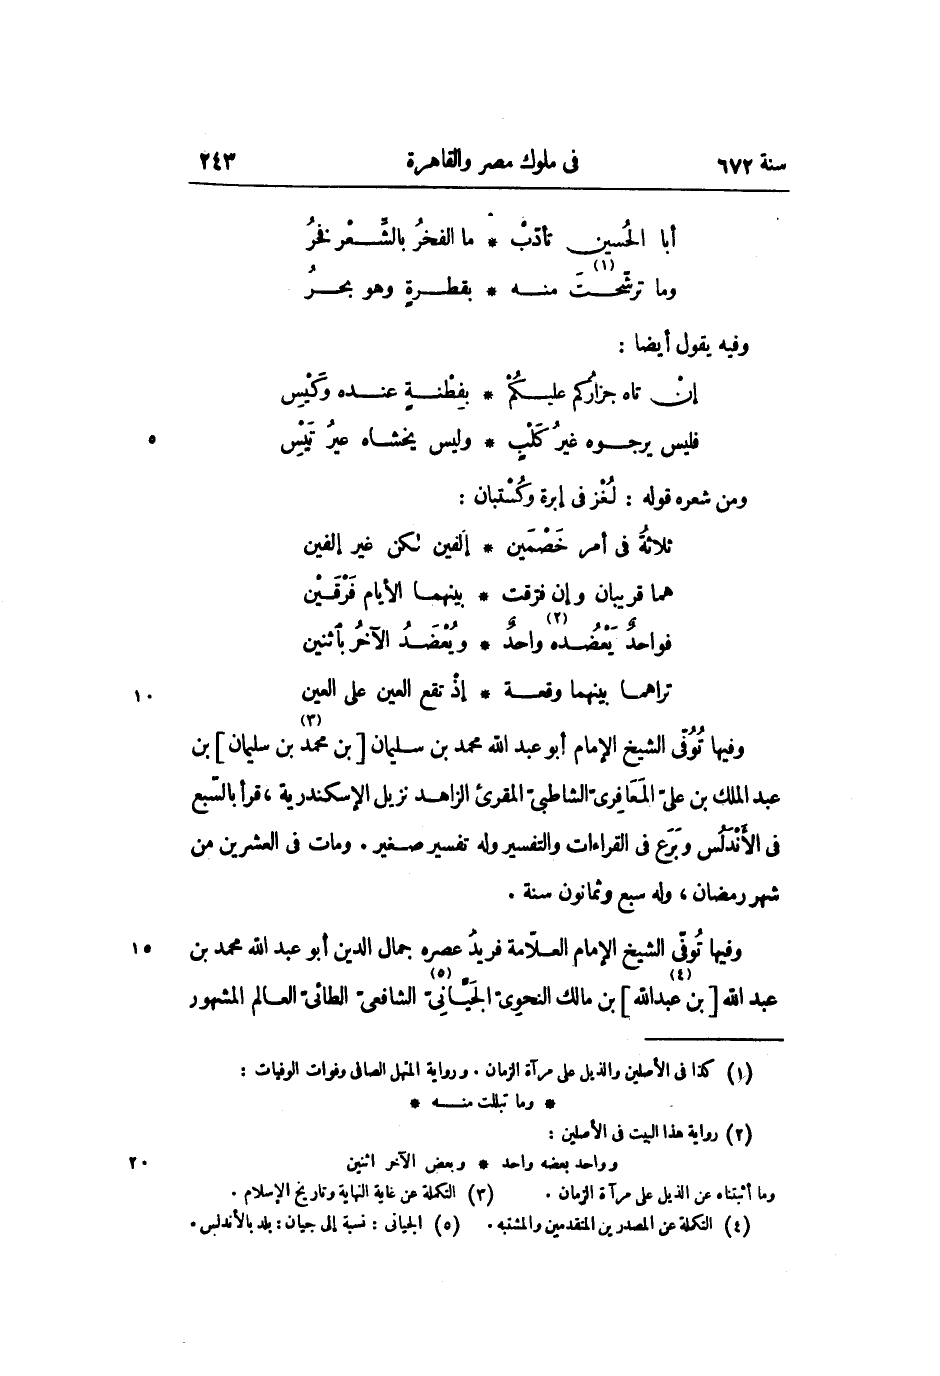 سنة ٦٧٢ فى ملوك مصر والقاهرة ٢٤٣
أبا الحُسين تأدّبْ * ما الفخرُ بالشَّعْر فخرُ
وما ترشّحتَ (١) منه * بقطرةٍ وهو بحرُ
وفيه يقول أيضا :
إنْ تاه جزاركم عليكُمْ * بفِطْنةٍ عنده وكَيْسِ
فليس يرجوه غيرُ كَلْبٍ * وليس يخشاه غيرُ تَيْسِ ٥
ومن شعره قوله : لُغْز فى إبرة وكُسْتبان :
ثلاثةٌ فى أمر خَصْمَين * إلفين لكن غير إلفين
هما قريبان وإن فرّقت * بينهما الأيام فَرْقَيْن
فواحدٌ يَعْضُده (٢) واحدٌ * ويُعْضَدُ الآخرُ بآثنين
تراهما بينهما وقعة * إذْ تقع العين على العين ١٠
وفيها تُوُفّى الشيخ الإمام أبو عبد الله محمد بن سليمان [بن محمد (٣) بن سليمان] بن
عبد الملك بن علىّ المَعَافِرىّ الشاطبىّ المقرئ الزاهد نزيل الإسكندرية ، قرأ بالسّبع
فى الأَنْدَلُس وبَرَع فى القراءات والتفسير وله تفسير صغير . ومات فى العشرين من
شهر رمضان ، وله سبع وثمانون سنة .
وفيها تُوفّى الشيخ الإمام العلّامة فريدُ عصره جمال الدين أبو عبد الله محمد بن ١٥
عبد الله [بن عبدالله (٤)] بن مالك النحوىّ الجَيَّانِىّ (٥) الشافعىّ الطائىّ العالم المشهور
(١) كذا فى الأصلين والذيل على مرآة الزمان . ورواية المنهل الصافى وفوات الوفيات :
* وما تبللت منه *
(٢) رواية هذا البيت فى الأصلين :
وواحد بعضه واحد * وبعض الآخر اثنين ٢٠
وما أثبتناه عن الذيل على مرآة الزمان . (٣) التكملة عن غاية النهاية وتاريخ الإسلام .
(٤) التكملة عن المصدرين المتقدمين والمشتبه . (٥) الجيانى : نسبة إلى جيان : بلد بالأندلس .